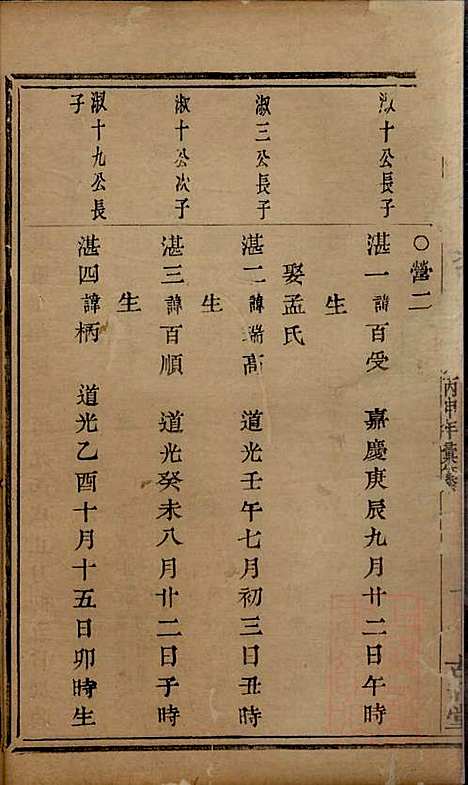 ○營二
淑十公長子
湛一諱百受　嘉慶庚辰九月廿二日午時
生
娶孟氏
淑三公長子
湛二諱瑞高　道光壬午七月初三日丑時
生
淑十公次子
湛三諱百順　道光癸未八月廿二日子時
生
淑十九公長
子
湛四諱柄　道光乙酉十月十五日卯時生
丙申年